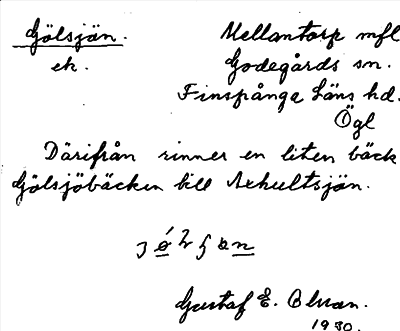 Gölsjön. Mellantorp mfl
ek. Godegårds sn.
Finspånga Läns hd.
Ögl
Därifrån rinner en liten bäck
Gölsjöbäcken till Axhultsjön.
Gustaf E. Olsson.
1930.